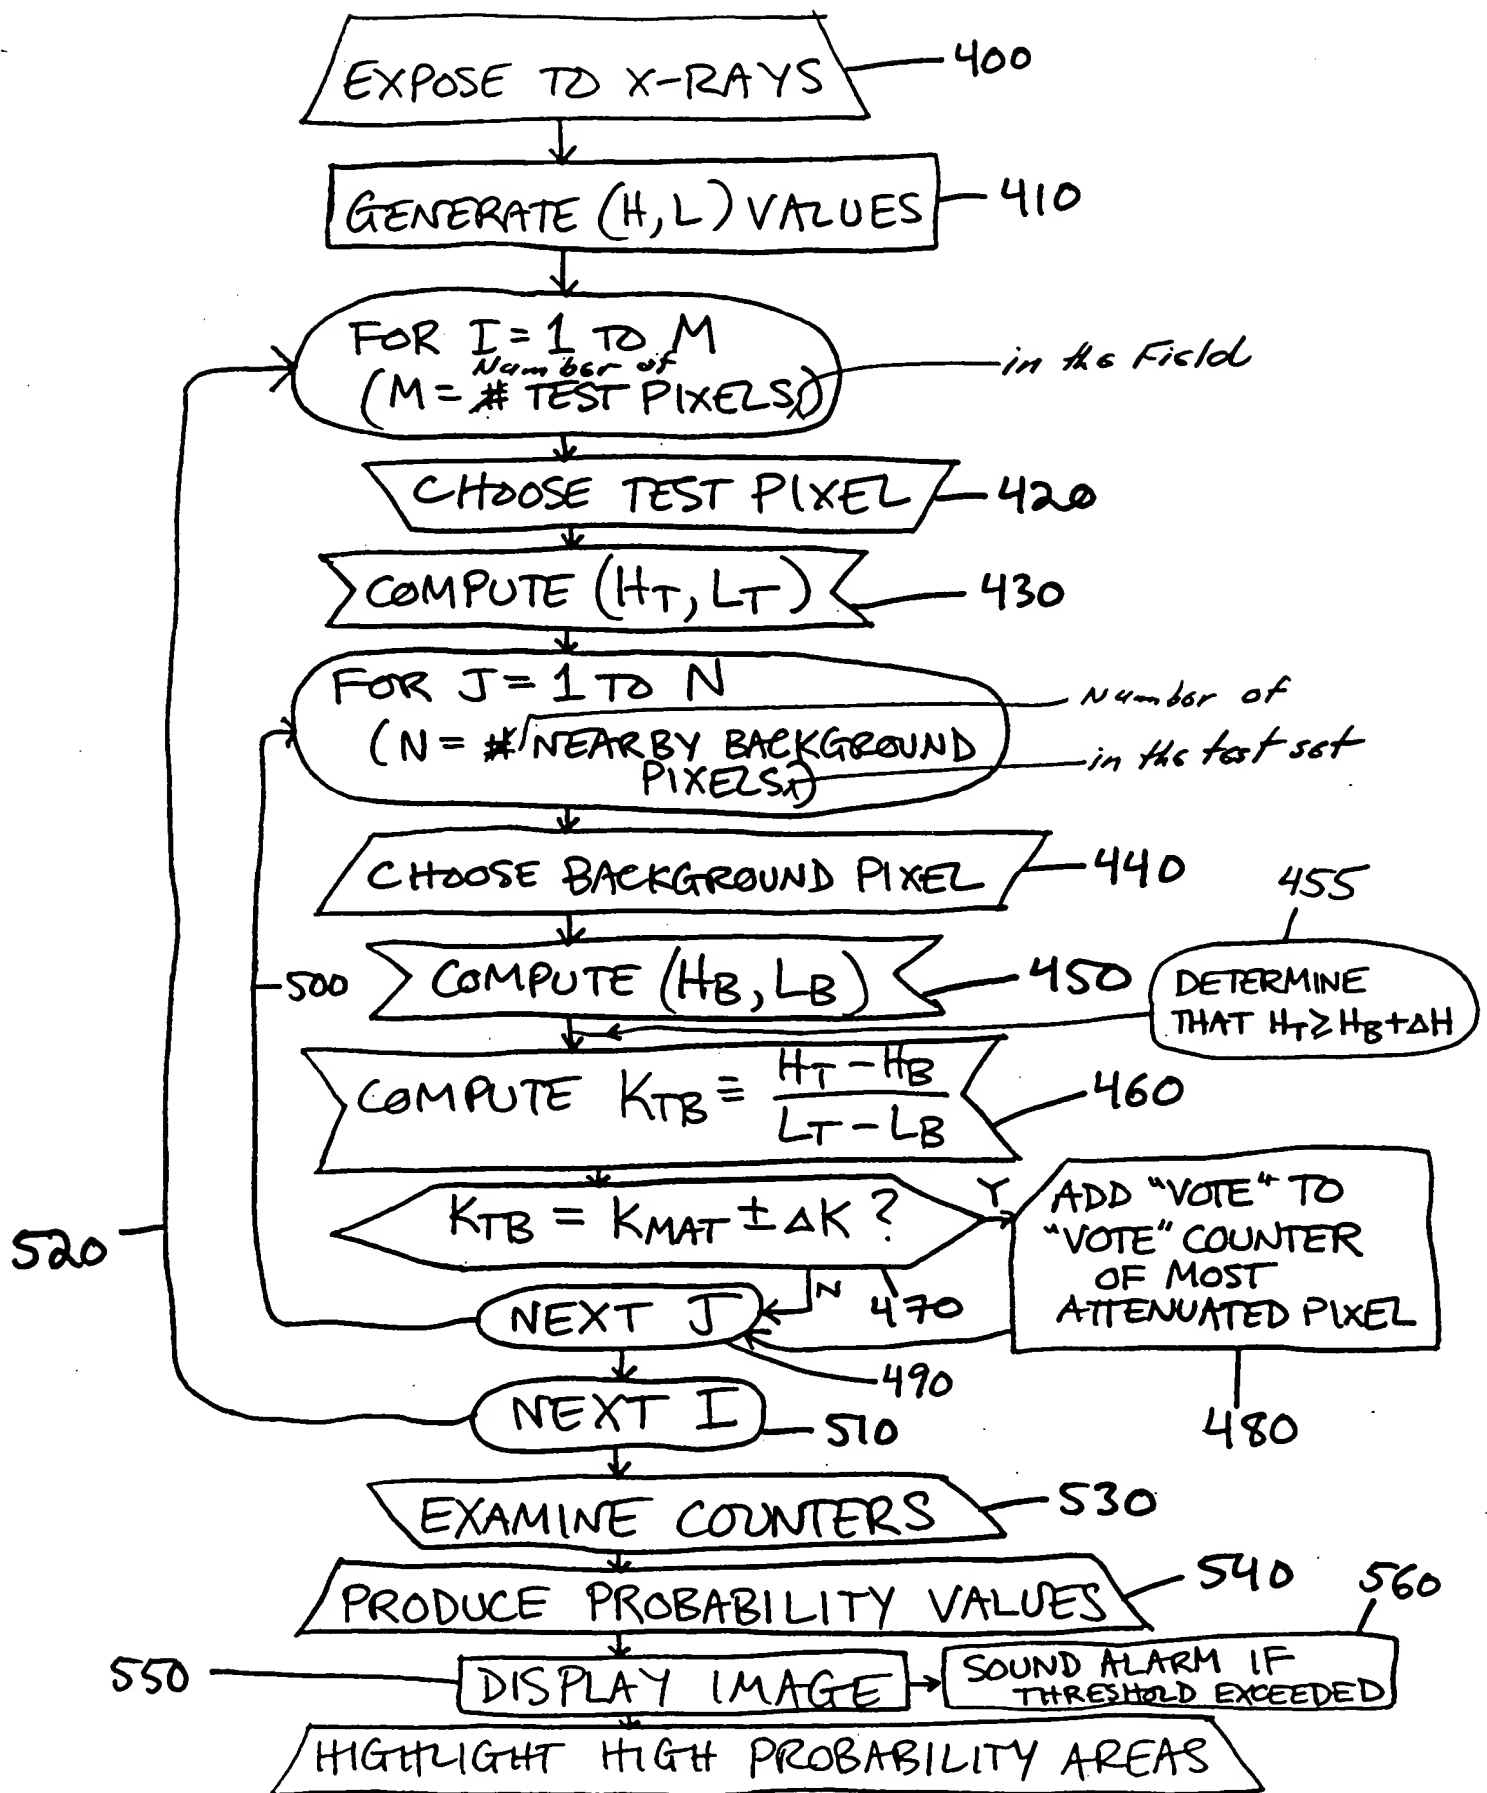 EXPOSE TO X-RAYS
400
GENERATE (H, L) VALUES
410
FOR I = 1 TO M
Number of
(M = # TEST PIXELS)
in the Field
CHOOSE TEST PIXEL
420
COMPUTE (HT, LT)
430
FOR J = 1 TO N
Number of
(N = # NEARBY BACKGROUND
PIXELS)
in the test set
CHOOSE BACKGROUND PIXEL
440
455
500
COMPUTE (HB, LB)
450
DETERMINE
THAT HT ≥ HB + ΔH
COMPUTE KTB ≡ HT - HB
LT - LB
460
KTB = KMAT ± ΔK ?
Y
ADD "VOTE" TO
"VOTE" COUNTER
OF MOST
ATTENUATED PIXEL
520
N
470
NEXT J
490
480
NEXT I
510
EXAMINE COUNTERS
530
PRODUCE PROBABILITY VALUES
540
560
550
DISPLAY IMAGE
SOUND ALARM IF
THRESHOLD EXCEEDED
HIGHLIGHT HIGH PROBABILITY AREAS